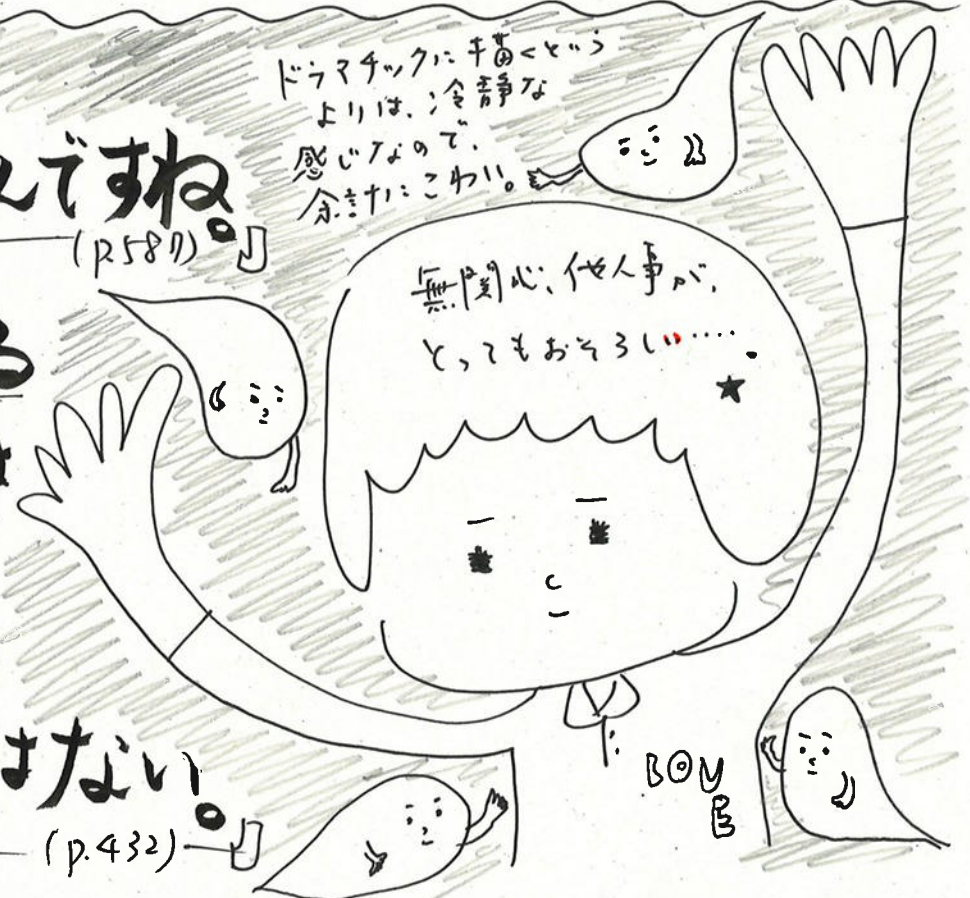 ドラマチックに描くという
よりは、冷静な
感じなので、
余計にこわい。
んですね。
(p.587)
無関心、他人事が、
とってもおそろしい・・・・・
る
はない。
(p.432)
BOUE